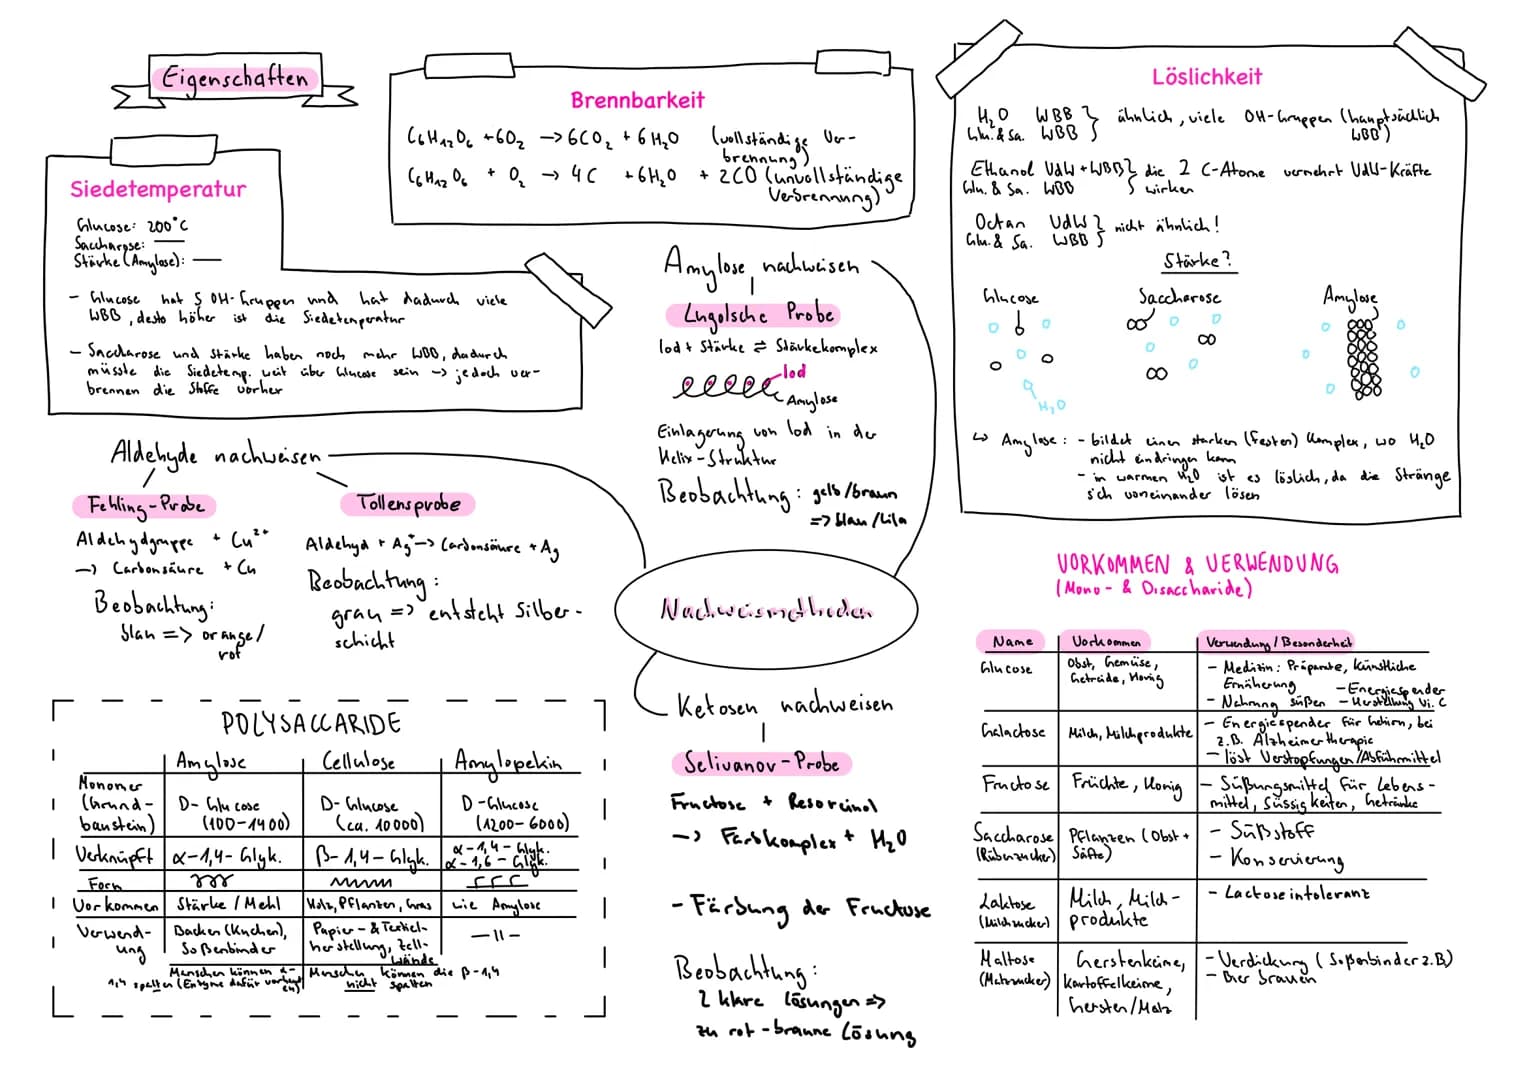 Eigenschaften
Siedetemperatur
Glucose: 200°C
Saccharose: —
Stärke (Amylose): —
- Glucose hat 5 OH-Gruppen und hat dadurch viele
WBB, desto höher ist die Siedetemperatur
- Saccharose und Stärke haben noch mehr WBB, dadurch
müsste die Siedetemp. weit über Glucose sein -> jedoch ver-
brennen die Stoffe vorher
Brennbarkeit
C6H12O6 + 6O2 → 6CO2 + 6H2O (vollständige Ver-
brennung)
C6H12O6 + O2 → 4C + 6H2O + 2CO (unvollständige
Verbrennung)
Löslichkeit
H2O WBB } ähnlich, viele OH-Gruppen (hauptsächlich
Glu. & Sa. WBB WBB)
Ethanol VdW + WBB } die 2 C-Atome vermehrt VdW-Kräfte
Glu. & Sa. WBB wirken
Octan VdW } nicht ähnlich!
Glu. & Sa. WBB
Stärke?
Glucose Saccharose Amylose
H2O
↳ Amylose: - bildet einen starken (festen) Komplex, wo H2O
nicht eindringen kann
- in warmen H2O ist es löslich, da die Stränge
sich voneinander lösen
Nachweismethoden
Amylose nachweisen
Lugolsche Probe
Iod + Stärke ⇌ Stärkekomplex
Iod
Amylose
Einlagerung von Iod in der
Helix-Struktur
Beobachtung: gelb/braun
=> blau/lila
Aldehyde nachweisen
Fehling-Probe
Aldehydgruppe + Cu2+
-> Carbonsäure + Cu
Beobachtung:
blau => orange/
rot
Tollensprobe
Aldehyd + Ag+ -> Carbonsäure + Ag
Beobachtung:
grau => entsteht Silber-
schicht
Ketosen nachweisen
Selivanov-Probe
Fructose + Resorcinol
-> Farbkomplex + H2O
- Färbung der Fructose
Beobachtung:
2 klare Lösungen =>
zu rot-braune Lösung
POLYSACCARIDE
Amylose Cellulose Amylopekin
Monomer
(Grund-
baustein)
D-Glucose
(100-1400)
D-Glucose
(ca. 10000)
D-Glucose
(1200-6000)
Verknüpft α-1,4-Glyk. β-1,4-Glyk. α-1,4-Glyk.
α-1,6-Glyk.
Form
Vorkommen Stärke/Mehl Holz, Pflanzen, Gras wie Amylose
Verwend-
ung
Backen (Kuchen),
Soßenbinder
Papier- & Textil-
herstellung, Zell-
wände
-||-
Menschen können α-
1,4 spalten (Enzyme dafür vorhand
en)
Menschen können die β-1,4
nicht spalten
VORKOMMEN & VERWENDUNG
(Mono- & Disaccharide)
Name Vorkommen Verwendung/Besonderheit
Glucose
Obst, Gemüse,
Getreide, Honig
- Medizin: Präparate, künstliche
Ernäherung - Energiespender
- Nahrung süßen - Herstellung Vi. C
Galactose
Milch, Milchprodukte
- Energiespender für Gehirn, bei
z.B. Alzheimertherapie
- löst Verstopfungen/Abführmittel
Fructose
Früchte, Honig
- Süßungsmittel für Lebens-
mittel, Süssigkeiten, Getränke
Saccharose
(Rübenzucker)
Pflanzen (Obst +
Säfte)
- Süßstoff
- Konservierung
Laktose
(Milchzucker)
Milch, Milch-
produkte
- Lactoseintoleranz
Maltose
(Malzzucker)
Gerstenkeime,
Kartoffelkeime,
Gersten/Malz
- Verdickung (Soßenbinder z.B)
- Bier brauen